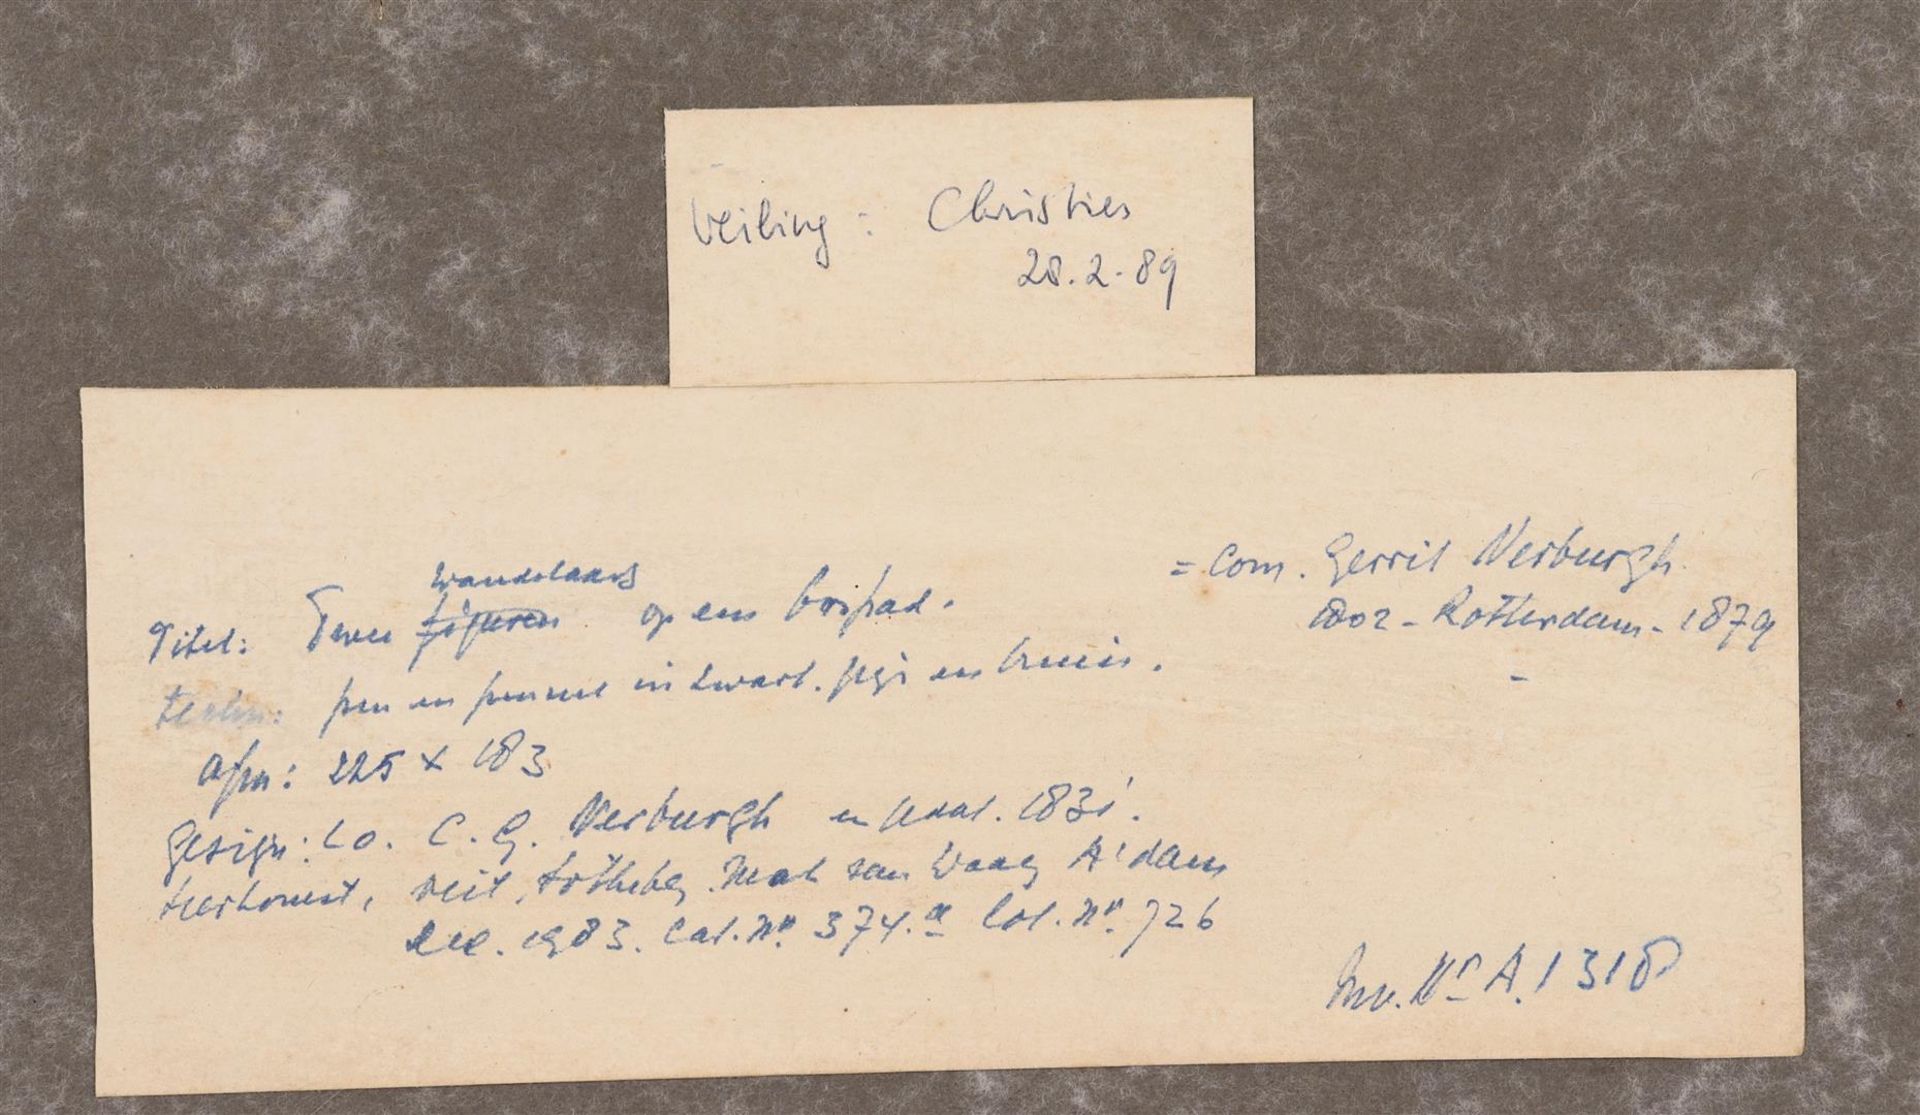 Veiling : Christies
28.2.89
= Corn. Gerrit Verburgh
1802 - Rotterdam - 1879
wandelaars
Titel: Twee figuren op een bospad.
techn: pen en penseel in zwart. grijs en bruin.
afm: 225 x 183
Gesign: l.o. C. G. Verburgh en gedat. 1831.
Herkomst, veil. Sotheby Mak van Waay A'dam
dec. 1983. Cat. Nr. 374. Lot. Nr. 726
Inv. Nr A. 1318